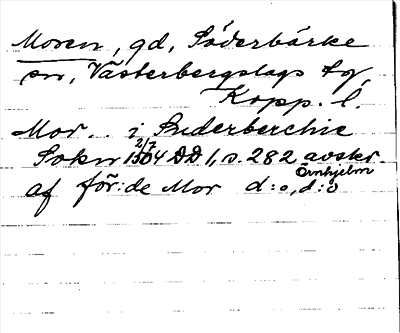 Moren, gd, Söderbärke
sn, Västerbergslags tg,
Kopp. l.
Mor.. i Suderberchie
Sokn 2/7 1504 DD 1, s. 282 avskr.
af för:de Mor d:o, Örnhjelm d:o